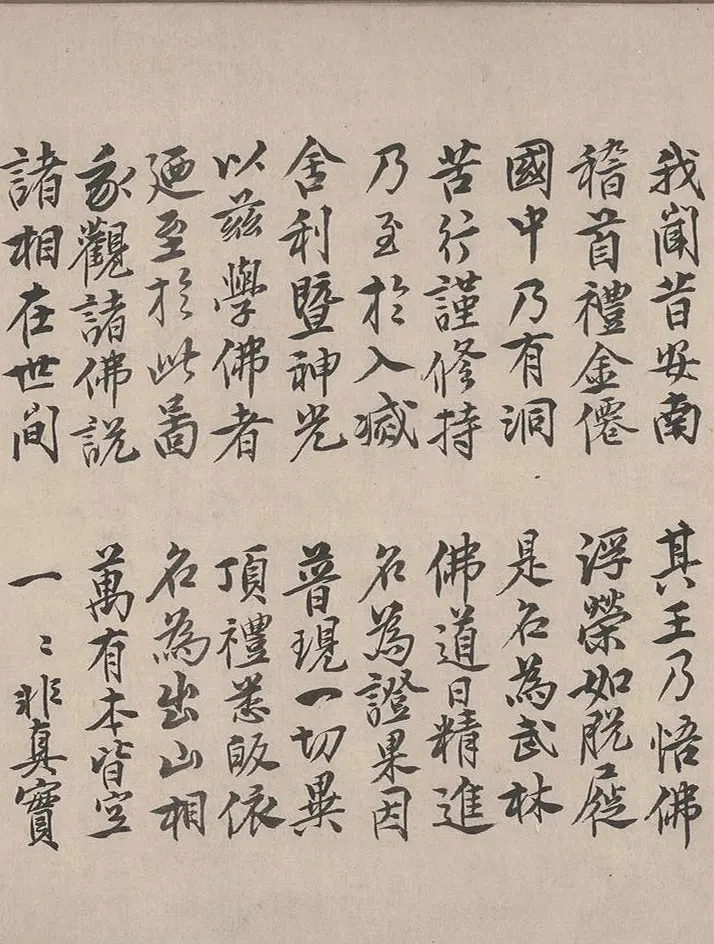 我聞昔安南 其王乃悟佛
稽首禮金僊 浮榮如脫屣
國中乃有洞 是名為武林
苦行謹修持 佛道日精進
乃至於入滅 名為證果因
舍利暨神光 普現一切異
以茲學佛者 頂禮悉皈依
廼至於此啚 名為出山相
我觀諸佛說 萬有本皆空
諸相在世間 一〻非真實